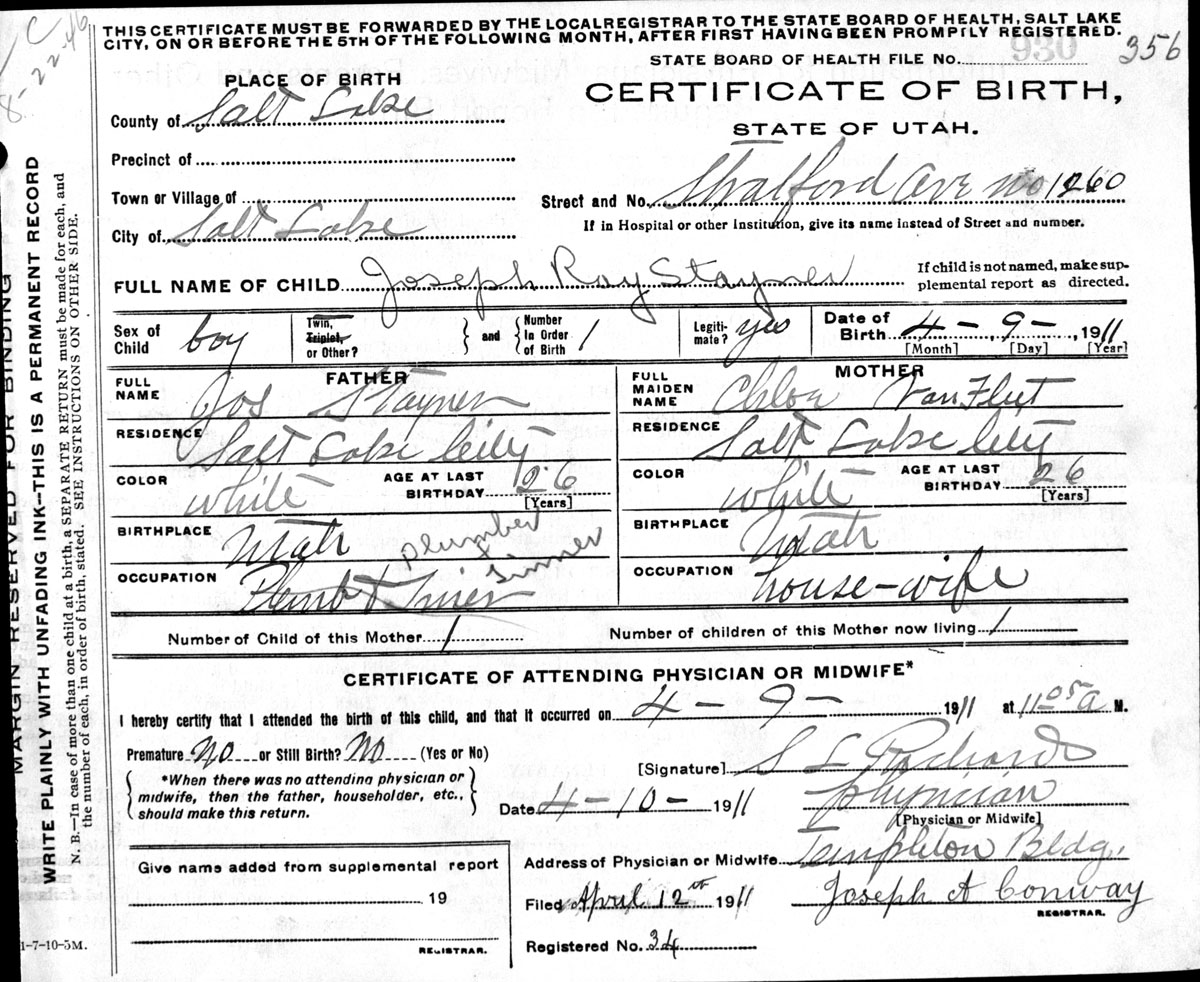 C
8-22-46
THIS CERTIFICATE MUST BE FORWARDED BY THE LOCAL REGISTRAR TO THE STATE BOARD OF HEALTH, SALT LAKE
CITY, ON OR BEFORE THE 5TH OF THE FOLLOWING MONTH, AFTER FIRST HAVING BEEN PROMPTLY REGISTERED.
STATE BOARD OF HEALTH FILE NO. 930 356
PLACE OF BIRTH
CERTIFICATE OF BIRTH,
STATE OF UTAH.
County of Salt Lake
Precinct of
Town or Village of
Street and No. Stratford Ave no 1260
City of Salt Lake
If in Hospital or other Institution, give its name instead of Street and number.
FULL NAME OF CHILD Joseph Roy Stayner
If child is not named, make sup-
plemental report as directed.
Sex of Child boy
Twin, Triplet, or Other?
and
Number in Order of Birth 1
Legiti-mate? yes
Date of Birth 4-9-, 1911
[Month] [Day] [Year]
FATHER
FULL NAME Jos Stayner
RESIDENCE Salt Lake City
COLOR white
AGE AT LAST BIRTHDAY 26
[Years]
BIRTHPLACE Utah
plumber
& tinner
OCCUPATION Plumb & Tiner
MOTHER
FULL MAIDEN NAME Chloe VanFleet
RESIDENCE Salt Lake City
COLOR white
AGE AT LAST BIRTHDAY 26
[Years]
BIRTHPLACE Utah
OCCUPATION house-wife
Number of Child of this Mother 1
Number of children of this Mother now living 1
CERTIFICATE OF ATTENDING PHYSICIAN OR MIDWIFE*
I hereby certify that I attended the birth of this child, and that it occurred on 4-9- 1911 at 11 05 a M.
Premature No or Still Birth? No (Yes or No)
*When there was no attending physician or
midwife, then the father, householder, etc.,
should make this return.
[Signature] S L Richards
Date 4-10- 1911
physician
[Physician or Midwife]
Give name added from supplemental report
19
REGISTRAR.
Address of Physician or Midwife Templeton Bldg.
Filed April 12th 1911
Joseph A Conway
REGISTRAR.
Registered No. 34
1-7-10-5M.
MARGIN RESERVED FOR BINDING
WRITE PLAINLY WITH UNFADING INK--THIS IS A PERMANENT RECORD
N. B.—In case of more than one child at a birth, a SEPARATE RETURN must be made for each, and
the number of each, in order of birth, stated. SEE INSTRUCTIONS ON OTHER SIDE.